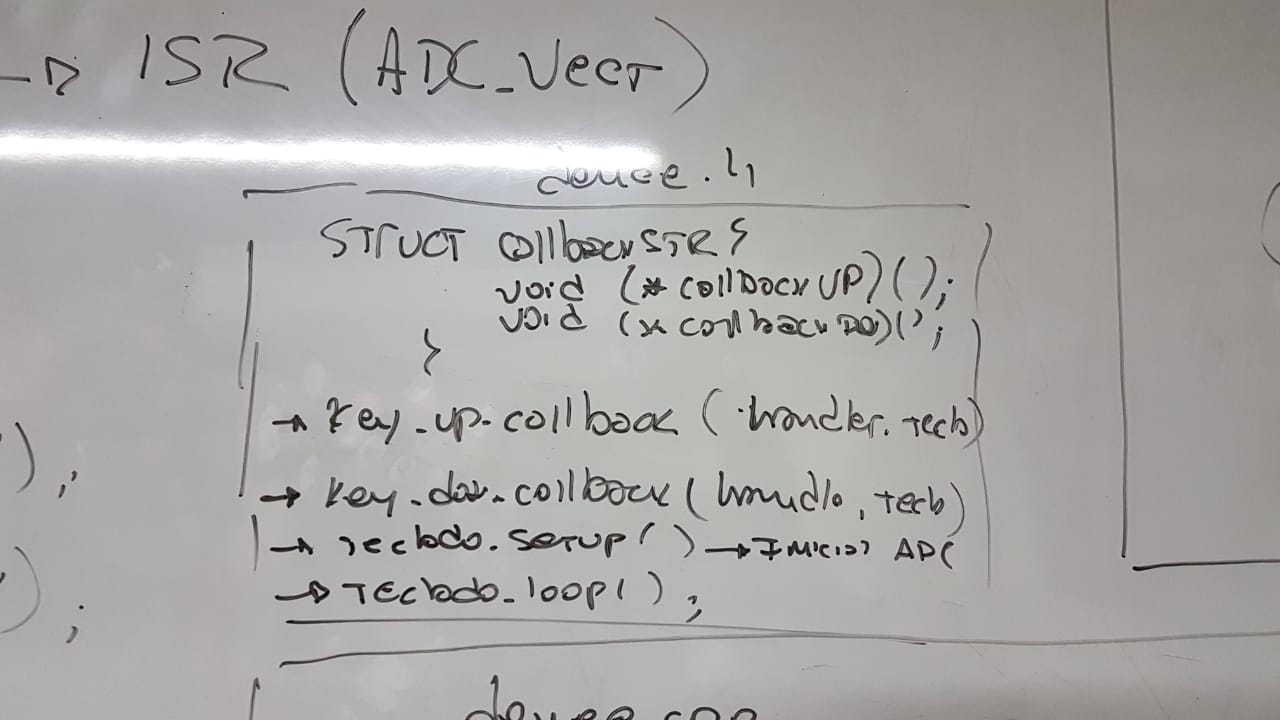 → ISR (ADC_Vect)
device.h
STRUCT callbackSTR {
void (* callbackUP)();
void (* callbackDO)();
}
→ key_up_callback (handler, tecla)
→ key_dow_callback (handle, tecla)
→ Teclado_setup() → Iniciar ADC
→ Teclado_loop();
);
);
device.cpp